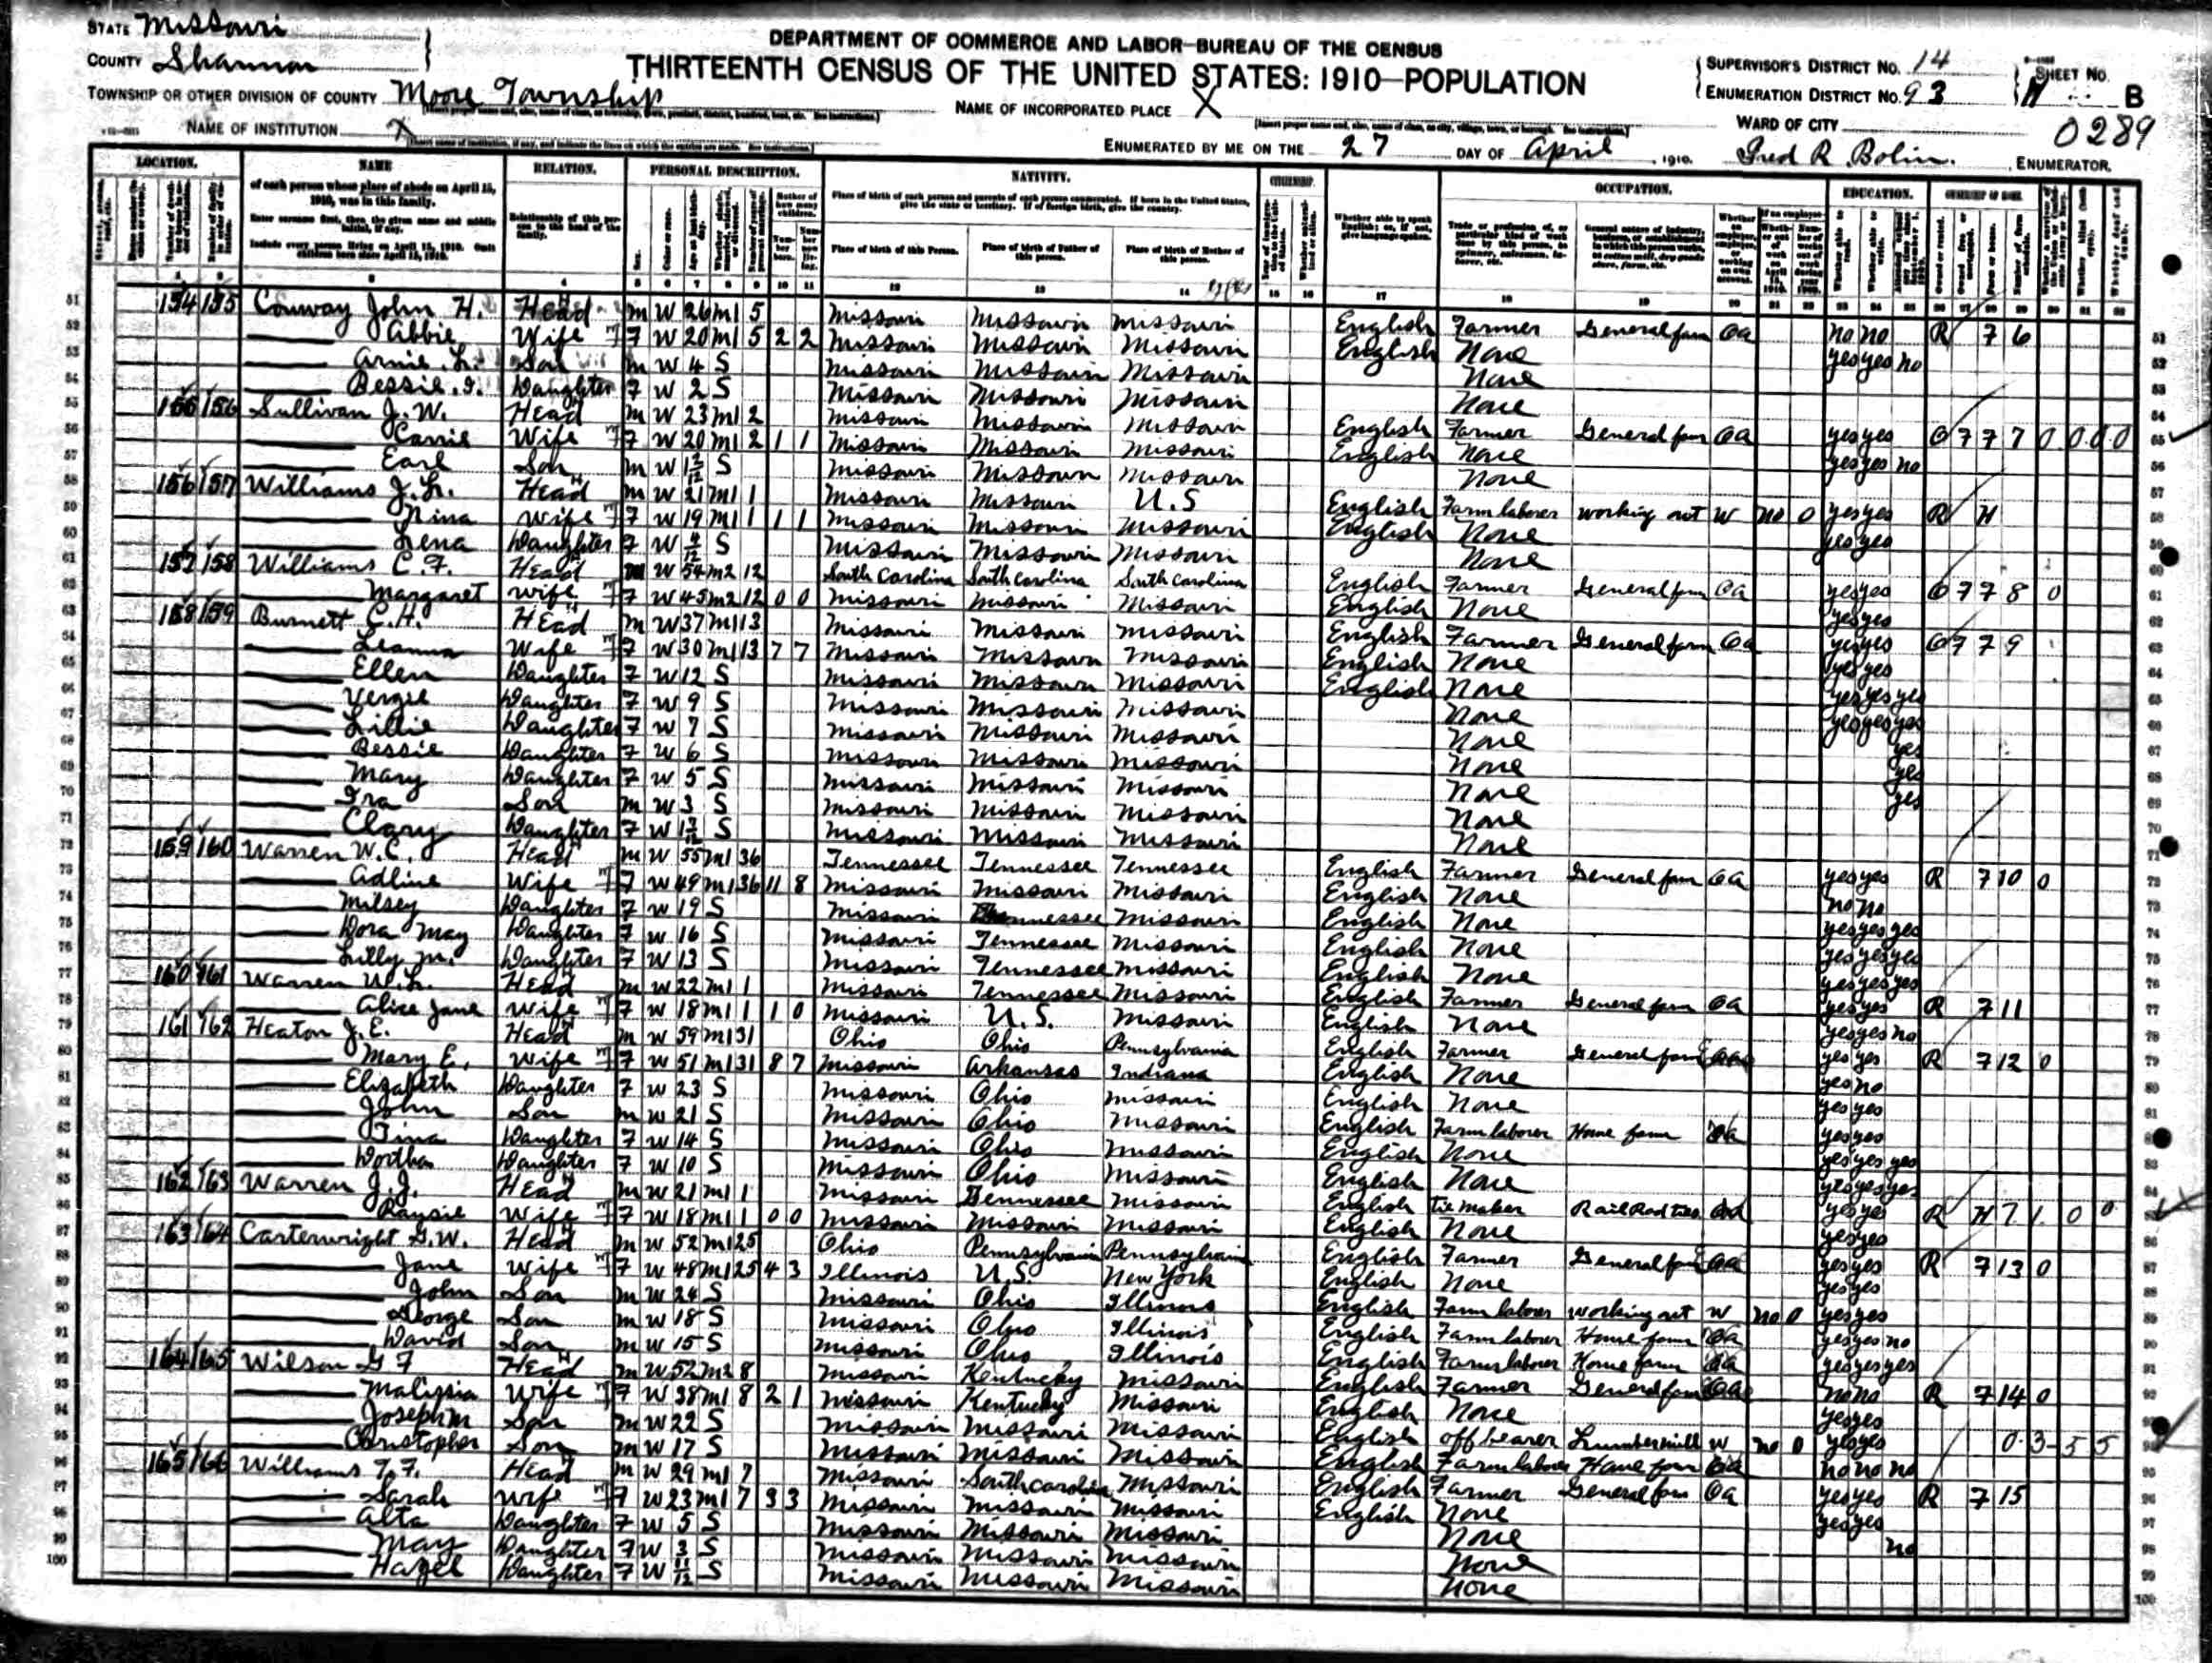 STATE Missouri
COUNTY Shannon
TOWNSHIP OR OTHER DIVISION OF COUNTY Moore Township
NAME OF INSTITUTION X
DEPARTMENT OF COMMERCE AND LABOR—BUREAU OF THE CENSUS
THIRTEENTH CENSUS OF THE UNITED STATES: 1910—POPULATION
NAME OF INCORPORATED PLACE X
ENUMERATED BY ME ON THE 27 DAY OF April, 1910. Fred R Bolin, ENUMERATOR.
SUPERVISOR'S DISTRICT No. 14
ENUMERATION DISTRICT No. 93
SHEET No. B
WARD OF CITY
0289
LOCATION. NAME RELATION. PERSONAL DESCRIPTION. NATIVITY. CITIZENSHIP. OCCUPATION. EDUCATION. OWNERSHIP OF HOME.
of each person whose place of abode on April 15, 1910, was in this family.
Enter surname first, then the given name and middle initial, if any.
Include every person living on April 15, 1910. Omit children born since April 15, 1910.
Relationship of this person to the head of the family.
Place of birth of each person and parents of each person enumerated. If born in the United States, give the state or territory. If of foreign birth, give the country.
Place of birth of this Person. Place of birth of Father of this person. Place of birth of Mother of this person.
51 154 155 Conway John H. Head m W 26 m1 5 Missouri Missouri Missouri English Farmer General farm Oa no no R 7 6
52 Abbie Wife F W 20 m1 5 2 2 Missouri Missouri Missouri English None yes yes no
53 Arnie L. Son m W 4 S Missouri Missouri Missouri None
54 Bessie I. Daughter F W 2 S Missouri Missouri Missouri None
55 155 156 Sullivan J. W. Head m W 23 m1 2 Missouri Missouri Missouri English Farmer General farm Oa yes yes O 7 7 7 0 0 0 0
56 Carrie Wife F W 20 m1 2 1 1 Missouri Missouri Missouri English None yes yes no
57 Earl Son m W S Missouri Missouri Missouri None
58 156 157 Williams J. L. Head m W 21 m1 1 Missouri Missouri U.S English Farm laborer working out W no 0 yes yes R H
59 Nina Wife F W 19 m1 1 1 1 Missouri Missouri Missouri English None yes yes
60 Lena Daughter F W S Missouri Missouri Missouri None
61 157 158 Williams C. F. Head m W 54 m2 12 South Carolina South Carolina South Carolina English Farmer General farm Oa yes yes O 7 7 8 0
62 Margaret Wife F W 45 m2 12 0 0 Missouri Missouri Missouri English None yes yes
63 158 159 Burnett C. H. Head m W 37 m1 13 Missouri Missouri Missouri English Farmer General farm Oa yes yes O 7 7 9
64 Leanna Wife F W 30 m1 13 7 7 Missouri Missouri Missouri English None yes yes
65 Ellen Daughter F W 12 S Missouri Missouri Missouri English None yes yes yes
66 Vergie Daughter F W 9 S Missouri Missouri Missouri None yes yes yes
67 Lillie Daughter F W 7 S Missouri Missouri Missouri None yes
68 Bessie Daughter F W 6 S Missouri Missouri Missouri None yes
69 Mary Daughter F W 5 S Missouri Missouri Missouri None yes
70 Ira Son m W 3 S Missouri Missouri Missouri None
71 Clary Daughter F W S Missouri Missouri Missouri None
72 159 160 Warren W. C. Head m W 55 m1 36 Tennessee Tennessee Tennessee English Farmer General farm Oa yes yes R 7 10 0
73 Adline Wife F W 49 m1 36 11 8 Missouri Missouri Missouri English None no no
74 Milsey Daughter F W 19 S Missouri Tennessee Missouri English None yes yes yes
75 Dora May Daughter F W 16 S Missouri Tennessee Missouri English None yes yes yes
76 Lilly M. Daughter F W 13 S Missouri Tennessee Missouri English None yes yes yes
77 160 161 Warren W. L. Head m W 22 m1 1 Missouri Tennessee Missouri English Farmer General farm Oa yes yes R 7 11
78 Alice Jane Wife F W 18 m1 1 1 0 Missouri U.S. Missouri English None yes yes no
79 161 162 Heaton J. E. Head m W 59 m1 31 Ohio Ohio Pennsylvania English Farmer General farm yes yes R 7 12 0
80 Mary E. Wife F W 51 m1 31 8 7 Missouri Arkansas Indiana English None yes no
81 Elizabeth Daughter F W 23 S Missouri Ohio Missouri English None yes yes
82 John Son m W 21 S Missouri Ohio Missouri English Farm laborer Home farm yes yes
83 Tina Daughter F W 14 S Missouri Ohio Missouri English None yes yes yes
84 Dortha Daughter F W 10 S Missouri Ohio Missouri English None yes yes yes
85 162 163 Warren J. J. Head m W 21 m1 1 Missouri Tennessee Missouri English tie maker Rail Rod ties yes yes R H 7 1 0 0
86 Wife F W 18 m1 1 0 0 Missouri Missouri Missouri English None yes yes
87 163 164 Carterwright G. W. Head m W 52 m1 25 Ohio Pennsylvania Pennsylvania English Farmer General farm Oa yes yes R 7 13 0
88 Jane Wife F W 48 m1 25 4 3 Illinois U.S. New York English None yes yes
89 John Son m W 24 S Missouri Ohio Illinois English Farm laborer working out W no 0 yes yes
90 George Son m W 18 S Missouri Ohio Illinois English Farm laborer Home farm yes yes no
91 David Son m W 15 S Missouri Ohio Illinois English Farm laborer Home farm yes yes yes
92 164 165 Wilson G F Head m W 52 m2 8 Missouri Kentucky Missouri English Farmer General farm no no R 7 14 0
93 Malissia Wife F W 38 m1 8 2 1 Missouri Kentucky Missouri English None yes yes
94 Joseph M Son m W 22 S Missouri Missouri Missouri English off bearer Lumber mill W no 0 yes yes 0-3-5 5
95 Christopher Son m W 17 S Missouri Missouri Missouri English Farm laborer Home farm no no no
96 165 166 Williams T. F. Head m W 29 m1 7 Missouri South Carolina Missouri English Farmer General farm Oa yes yes R 7 15
97 Sarah Wife F W 23 m1 7 3 3 Missouri Missouri Missouri English None yes yes
98 Alta Daughter F W 5 S Missouri Missouri Missouri None no
99 May Daughter F W 3 S Missouri Missouri Missouri None
100 Hazel Daughter F W 11/12 S Missouri Missouri Missouri None